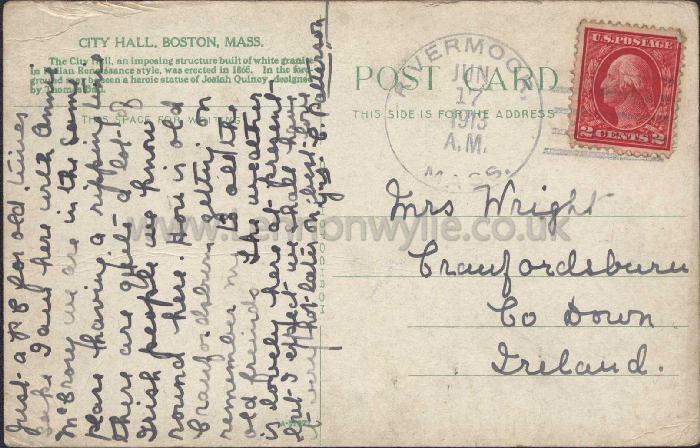 CITY HALL, BOSTON, MASS.
The City Hall, an imposing structure built of white granite
in Italian Renaissance style, was erected in 1865. In the fore-
ground may be seen a heroic statue of Josiah Quincy designed
by Thomas Ball.
THIS SPACE FOR WRITING
POST CARD
THIS SIDE IS FOR THE ADDRESS
JUN
17
1913
A.M.
MASS.
U.S. POSTAGE
2 CENTS 2
Mrs Wright
Crawfordsburn
Co Down
Ireland.
Just a PC for old times
sake I am here with Annie
McBrory we are in the same
place & having a ripping time
there are quite a lot of
Irish people we know
round here. How is old
Crawfordsburn getting on
remember me to all the
old freinds The weather
is lovely here at present
but I expect we shall have
it very hot later on best love
from C Patterson
www.Lennonwylie.co.uk